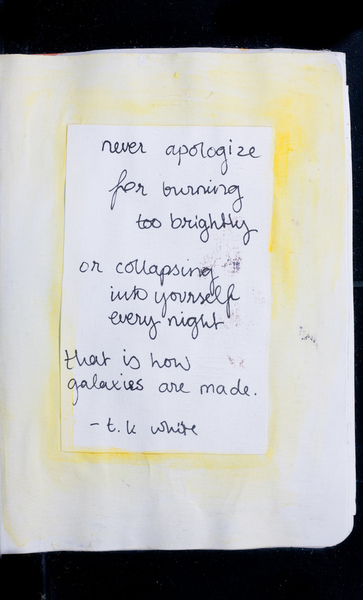 never apologize
for burning
too brightly
or collapsing
into yourself
every night
that is how
galaxies are made.
- t.k white